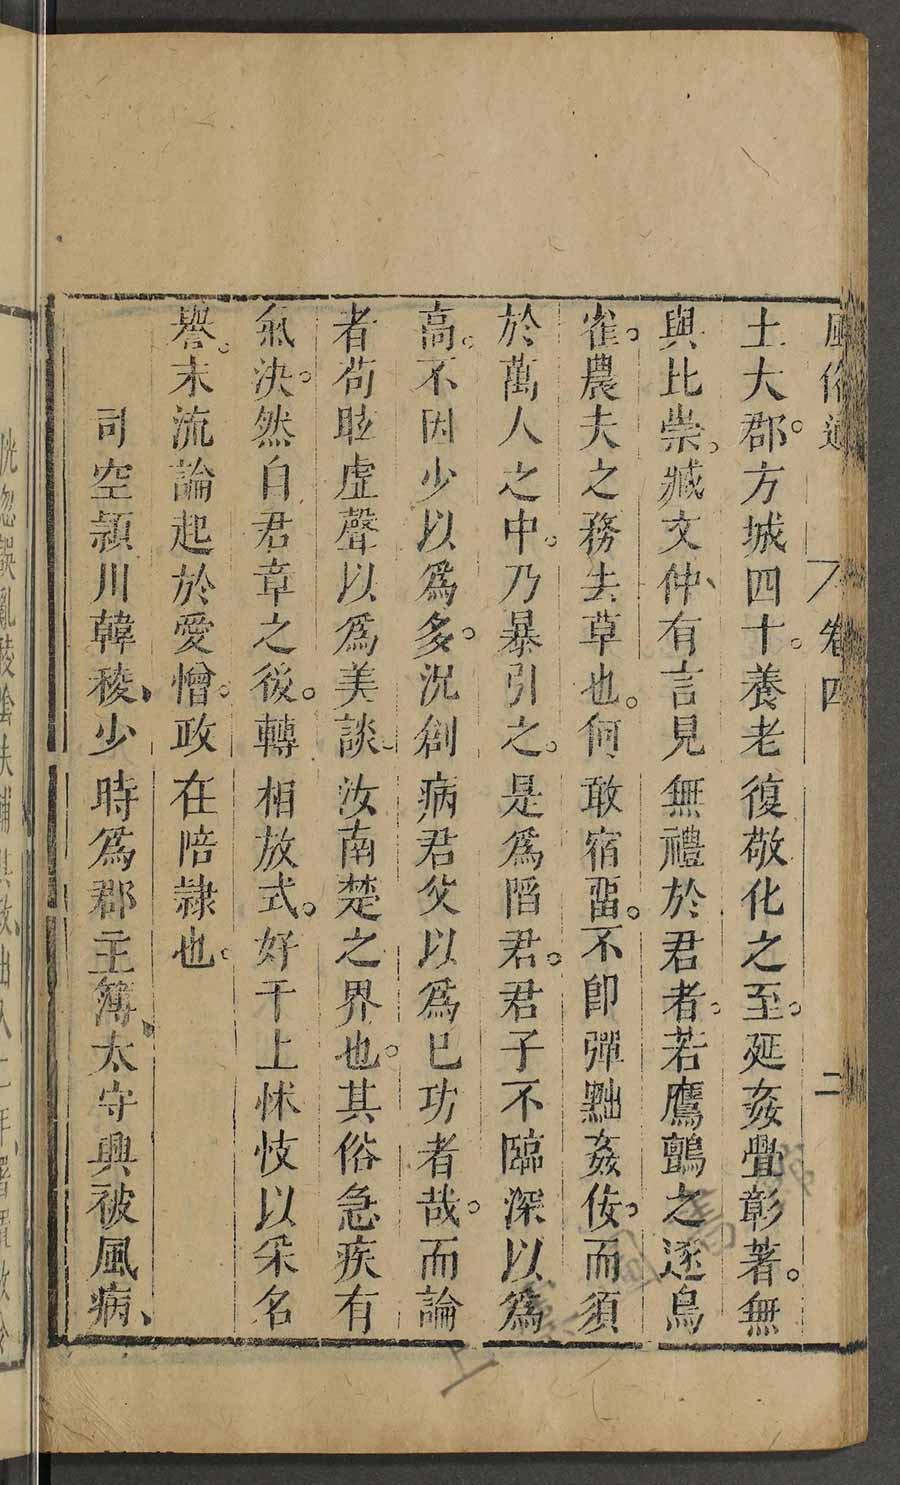 風俗通 卷四 二
土大郡。方城四十。養老復敬化之至。延姦舋彰著。無
與比崇。臧文仲、有言見無禮於君者。若鷹鸇之逐鳥
雀。農夫之務去草也。何敢宿畱。不卽彈黜姦佞。而須
於萬人之中。乃暴引之。是爲陷君。君子不臨深以爲
高。不因少以爲多。況創病君父以爲巳功者哉。而論
者苟眩虛聲以爲美談。汝南楚之界也。其俗急疾有
氣決。然自君章之後。轉相放式。好干上怵忮以采名
譽。末流論起於愛憎。政在陪隷也。
司空潁川韓稜、少時爲郡主簿、太守興被風病、